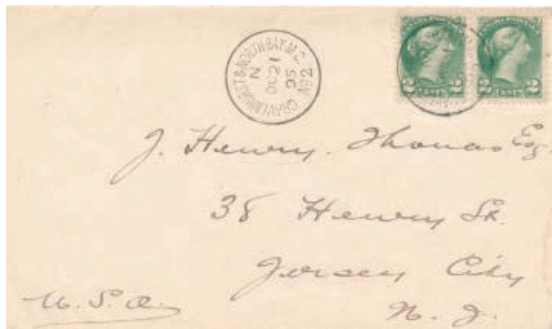 GRAVENHURST & NORTH BAY M.C.
N
OC 21
95
2
2
2
2
CENTS
J. Henry Thomas Esq
38 Henry St.
Jersey City
N. J.
U.S.A.